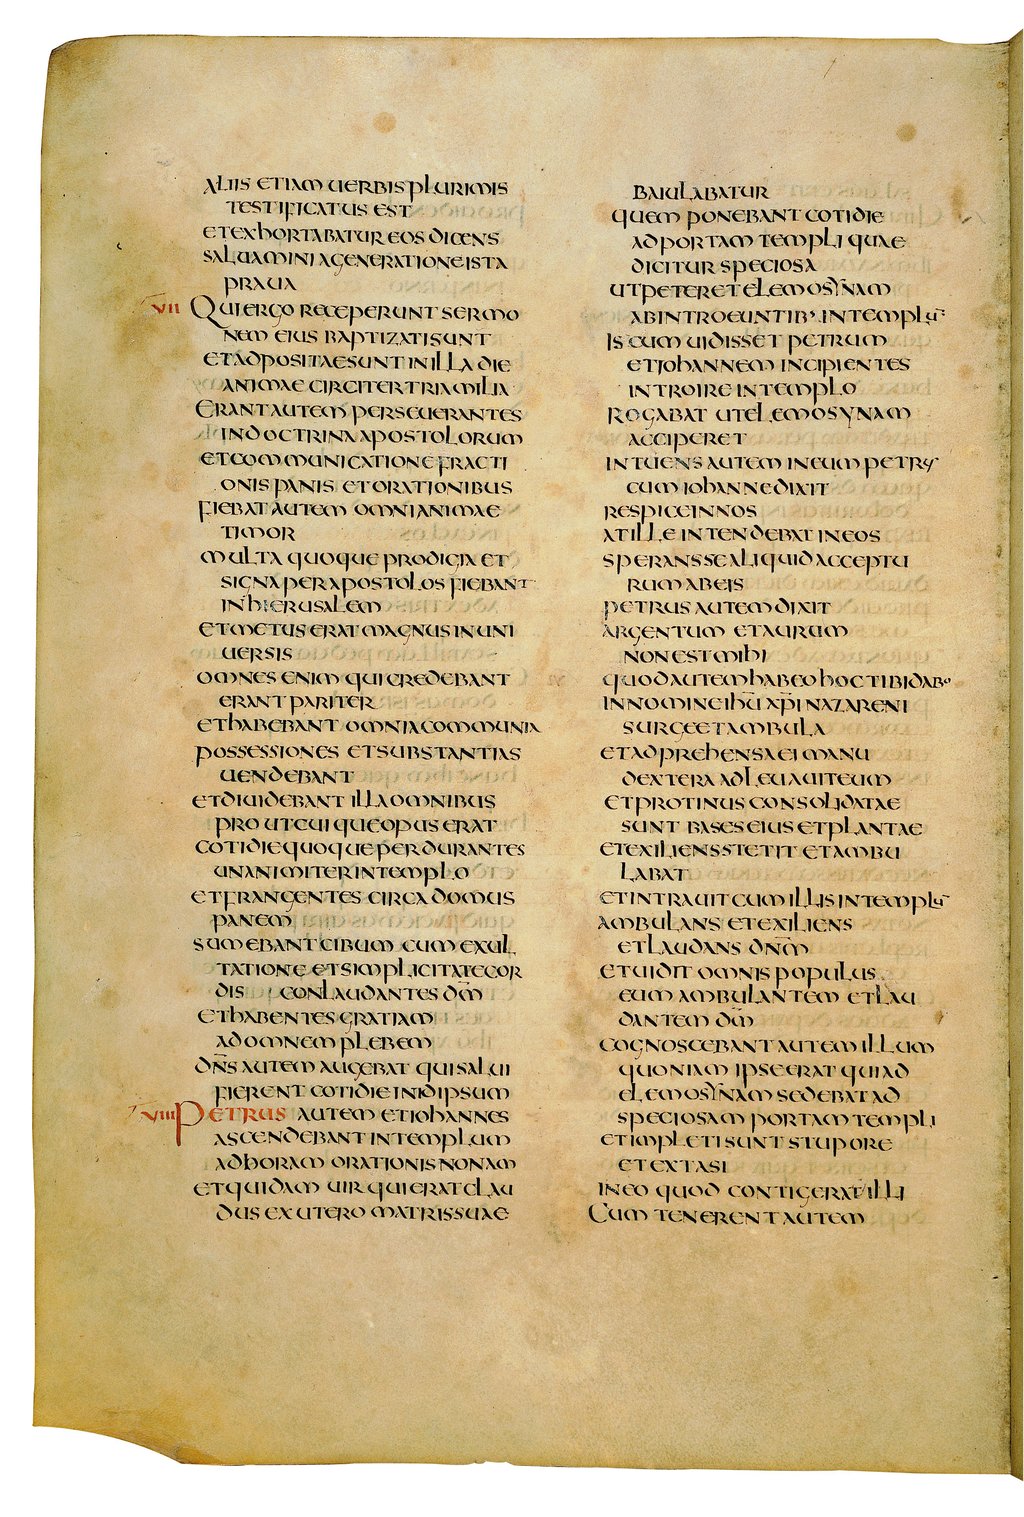 ALIIS ETIAM UERBIS PLURIMIS
TESTIFICATUS EST
ET EXHORTABATUR EOS DICENS
SALUAMINI A GENERATIONE ISTA
PRAUA
VII QUI ERGO RECEPERUNT SERMO
NEM EIUS BAPTIZATI SUNT
ET ADPOSITAE SUNT IN ILLA DIE
ANIMAE CIRCITER TRIA MILIA
ERANT AUTEM PERSEUERANTES
IN DOCTRINA APOSTOLORUM
ET COMMUNICATIONE FRACTI
ONIS PANIS ET ORATIONIBUS
FIEBAT AUTEM OMNI ANIMAE
TIMOR
MULTA QUOQUE PRODIGIA ET
SIGNA PER APOSTOLOS FIEBANT
IN HIERUSALEM
ET METUS ERAT MAGNUS IN UNI
UERSIS
OMNES ENIM QUI CREDEBANT
ERANT PARITER
ET HABEBANT OMNIA COMMUNIA
POSSESSIONES ET SUBSTANTIAS
UENDEBANT
ET DIUIDEBANT ILLA OMNIBUS
PROUT CUIQUE OPUS ERAT
COTIDIE QUOQUE PERDURANTES
UNANIMITER IN TEMPLO
ET FRANGENTES CIRCA DOMUS
PANEM
SUMEBANT CIBUM CUM EXUL
TATIONE ET SIMPLICITATE COR
DIS CONLAUDANTES DM̄
ET HABENTES GRATIAM
AD OMNEM PLEBEM
DN̄S AUTEM AUGEBAT QUI SALUI
FIERENT COTIDIE IN ID IPSUM
VIII PETRUS AUTEM ET IOHANNES
ASCENDEBANT IN TEMPLUM
AD HORAM ORATIONIS NONAM
ET QUIDAM UIR QUI ERAT CLAU
DUS EX UTERO MATRIS SUAE
BAIULABATUR
QUEM PONEBANT COTIDIE
AD PORTAM TEMPLI QUAE
DICITUR SPECIOSA
UT PETERET ELEMOSYNAM
AB INTROEUNTIB· IN TEMPLŪ
IS CUM UIDISSET PETRUM
ET IOHANNEM INCIPIENTES
INTROIRE IN TEMPLO
ROGABAT UT ELEMOSYNAM
ACCIPERET
INTUENS AUTEM IN EUM PETRUS
CUM IOHANNE DIXIT
RESPICE IN NOS
AT ILLE INTENDEBAT IN EOS
SPERANS SE ALIQUID ACCEPTU
RUM AB EIS
PETRUS AUTEM DIXIT
ARGENTUM ET AURUM
NON EST MIHI
QUOD AUTEM HABEO HOC TIBI DABO
IN NOMINE IHŪ XPĪ NAZARENI
SURGE ET AMBULA
ET ADPREHENSA EI MANU
DEXTERA ADLEUAUIT EUM
ET PROTINUS CONSOLIDATAE
SUNT BASES EIUS ET PLANTAE
ET EXILIENS STETIT ET AMBU
LABAT
ET INTRAUIT CUM ILLIS IN TEMPLŪ
AMBULANS ET EXILIENS
ET LAUDANS DNM̄
ET UIDIT OMNIS POPULUS
EUM AMBULANTEM ET LAU
DANTEM DM̄
COGNOSCEBANT AUTEM ILLUM
QUONIAM IPSE ERAT QUI AD
ELEMOSYNAM SEDEBAT AD
SPECIOSAM PORTAM TEMPLI
ET IMPLETI SUNT STUPORE
ET EXTASI
IN EO QUOD CONTIGERAT ILLI
CUM TENERENT AUTEM